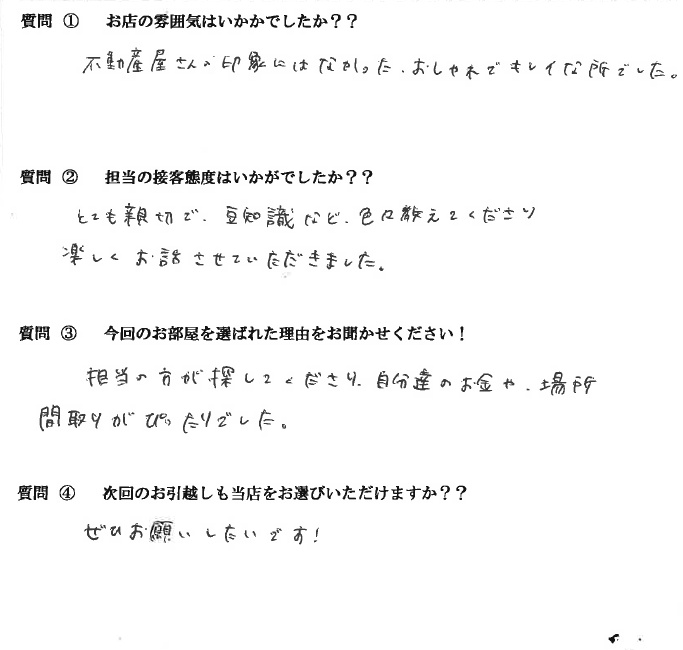 質問 ① お店の雰囲気はいかかでしたか？？
不動産屋さんの印象にはなかった、おしゃれでキレイな所でした。
質問 ② 担当の接客態度はいかがでしたか？？
とても親切で、豆知識など、色々教えてくださり
楽しくお話させていただきました。
質問 ③ 今回のお部屋を選ばれた理由をお聞かせください！
担当の方が探してくださり、自分達のお金や、場所
間取りがぴったりでした。
質問 ④ 次回のお引越しも当店をお選びいただけますか？？
ぜひお願いしたいです！